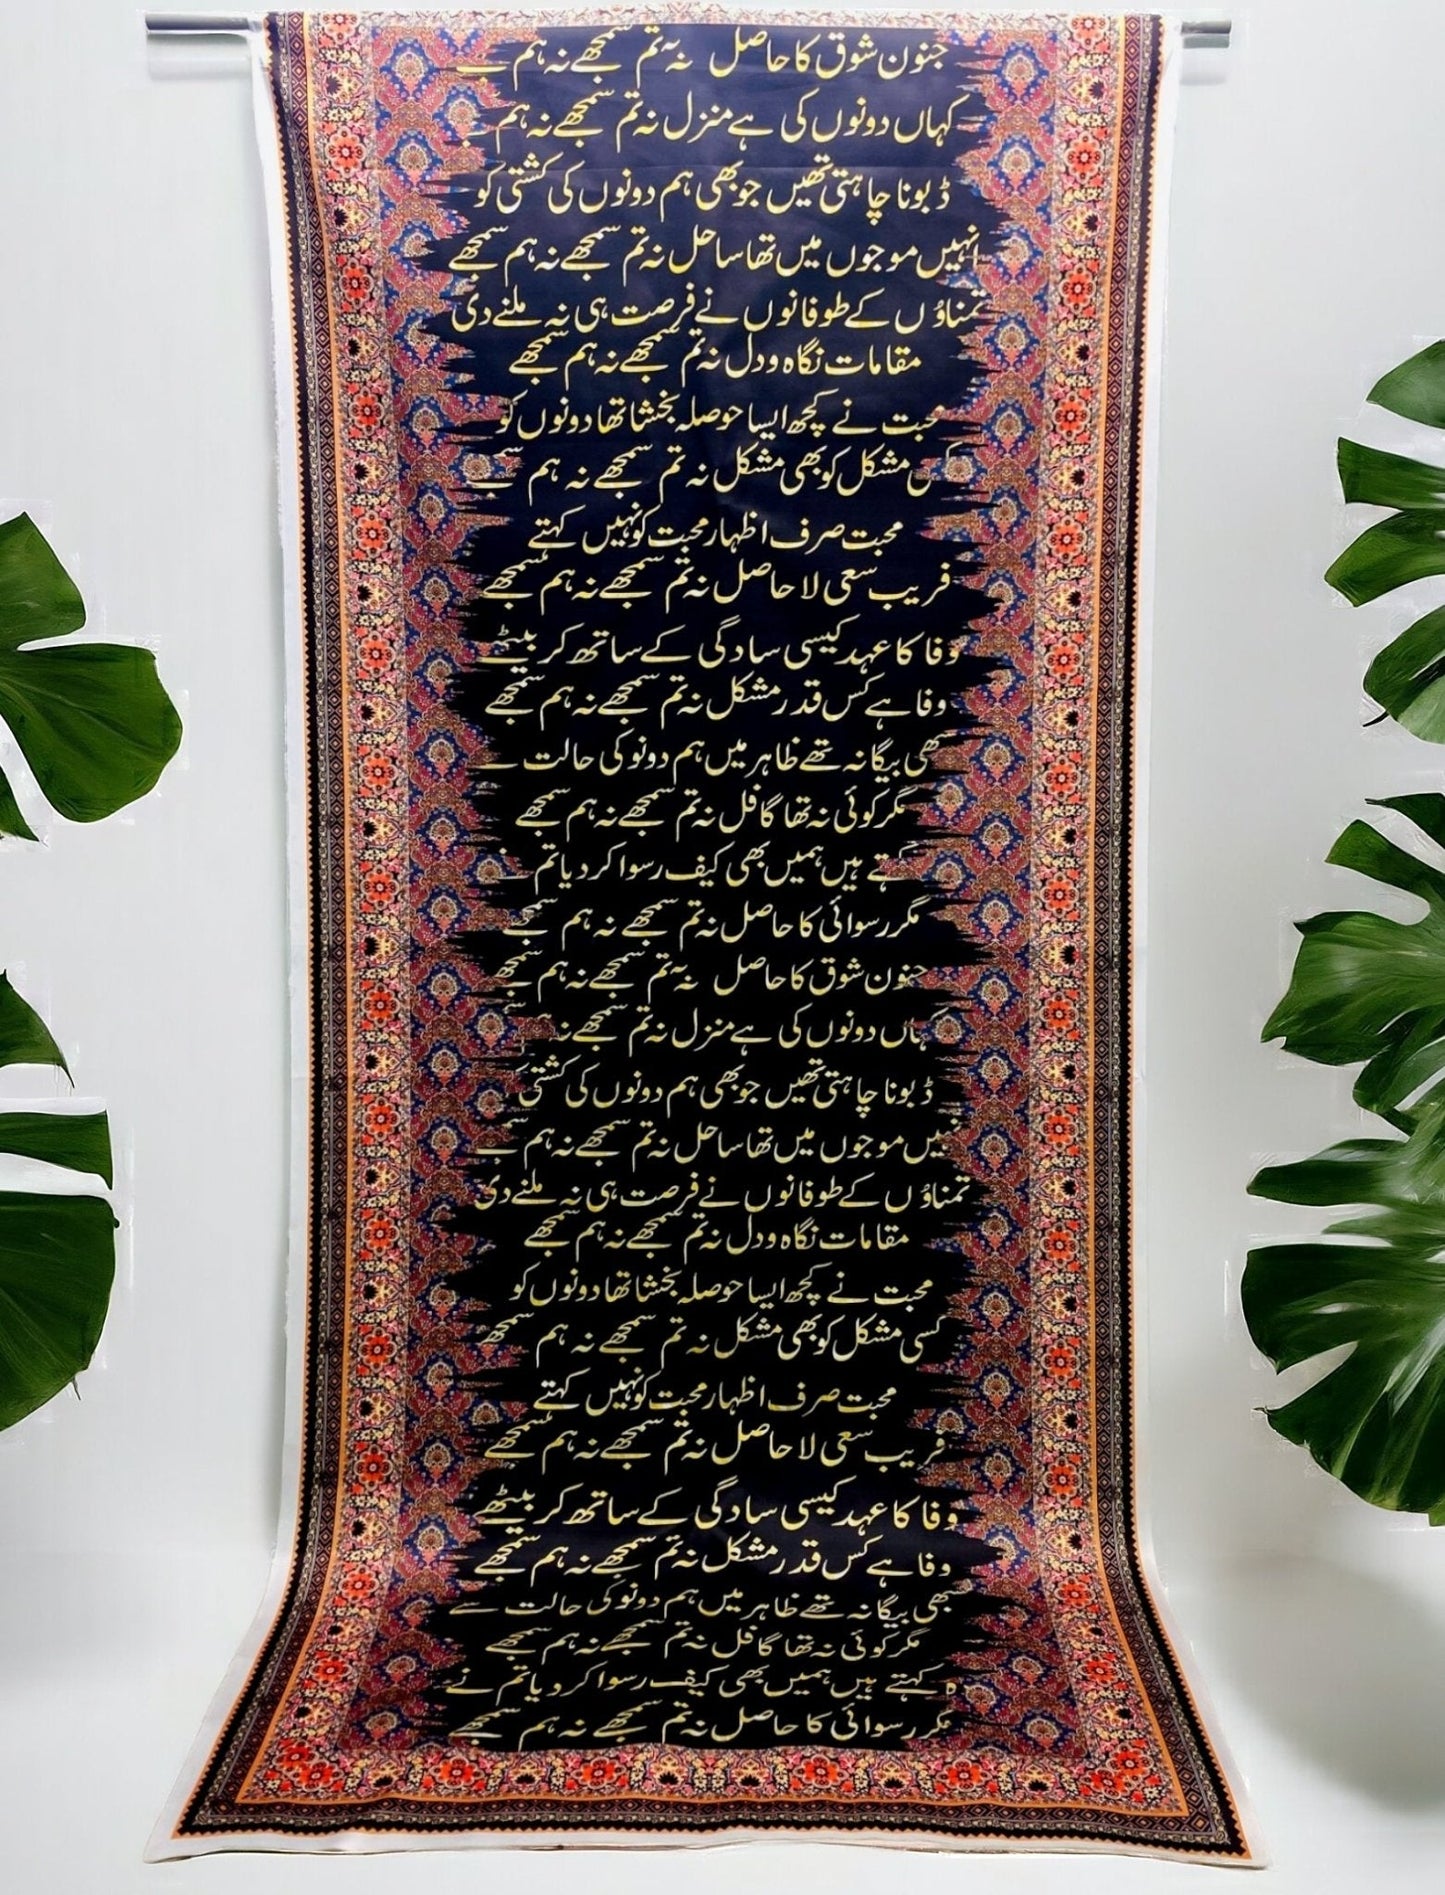 جنون شوق کا حاصل نہ تم سمجھے نہ ہم
کہاں دونوں کی ہے منزل نہ تم سمجھے نہ ہم
ڈبونا چاہتی تھیں جو بھی ہم دونوں کی کشتی کو
انہیں موجوں میں تھا ساحل نہ تم سمجھے نہ ہم سمجھے
تمناؤں کے طوفانوں نے فرصت ہی نہ ملنے دی
مقامات نگاہ و دل نہ تم سمجھے نہ ہم سمجھے
محبت نے کچھ ایسا حوصلہ بخشا تھا دونوں کو
مشکل کو بھی مشکل نہ تم سمجھے نہ ہم
محبت صرف اظہار محبت کو نہیں کہتے
فریب سعی لا حاصل نہ تم سمجھے نہ ہم سمجھے
وفا کا عہد کیسی سادگی کے ساتھ کر بیٹھے
وفا ہے کس قدر مشکل نہ تم سمجھے نہ ہم سمجھے
بیگانہ تھے ظاہر میں ہم دونو کی حالت
مگر کوئی نہ تھا گافل نہ تم سمجھے نہ ہم سمجھے
ہیں ہمیں بھی کیف رسوا کر دیا تم
مگر رسوائی کا حاصل نہ تم سمجھے نہ ہم سمجھے
جنون شوق کا حاصل نہ تم سمجھے نہ ہم سمجھے
دونوں کی ہے منزل نہ تم سمجھے نہ
ڈبونا چاہتی تھیں جو بھی ہم دونوں کی کشتی
موجوں میں تھا ساحل نہ تم سمجھے نہ ہم
تمناؤں کے طوفانوں نے فرصت ہی نہ ملنے دی
مقامات نگاہ و دل نہ تم سمجھے نہ ہم سمجھے
محبت نے کچھ ایسا حوصلہ بخشا تھا دونوں کو
کسی مشکل کو بھی مشکل نہ تم سمجھے نہ ہم
محبت صرف اظہار محبت کو نہیں کہتے
فریب سعی لا حاصل نہ تم سمجھے نہ ہم سمجھے
وفا کا عہد کیسی سادگی کے ساتھ کر بیٹھے
وفا ہے کس قدر مشکل نہ تم سمجھے نہ ہم سمجھے
بیگانہ تھے ظاہر میں ہم دونو کی حالت سے
مگر کوئی نہ تھا گافل نہ تم سمجھے نہ ہم سمجھے
کہتے ہیں ہمیں بھی کیف رسوا کر دیا تم نے
مگر رسوائی کا حاصل نہ تم سمجھے نہ ہم سمجھے